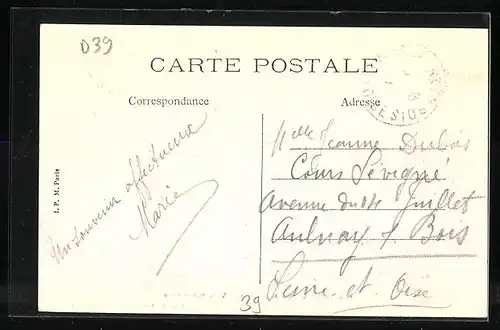 D39
CARTE POSTALE
Correspondance
Adresse
I. P. M. Paris
Un souvenir affectueux
Marie
Melle Jeanne Dubois
Cours Sévigné
Avenue du 14 Juillet
Aulnay s/ Bois
Seine-et-Oise
39